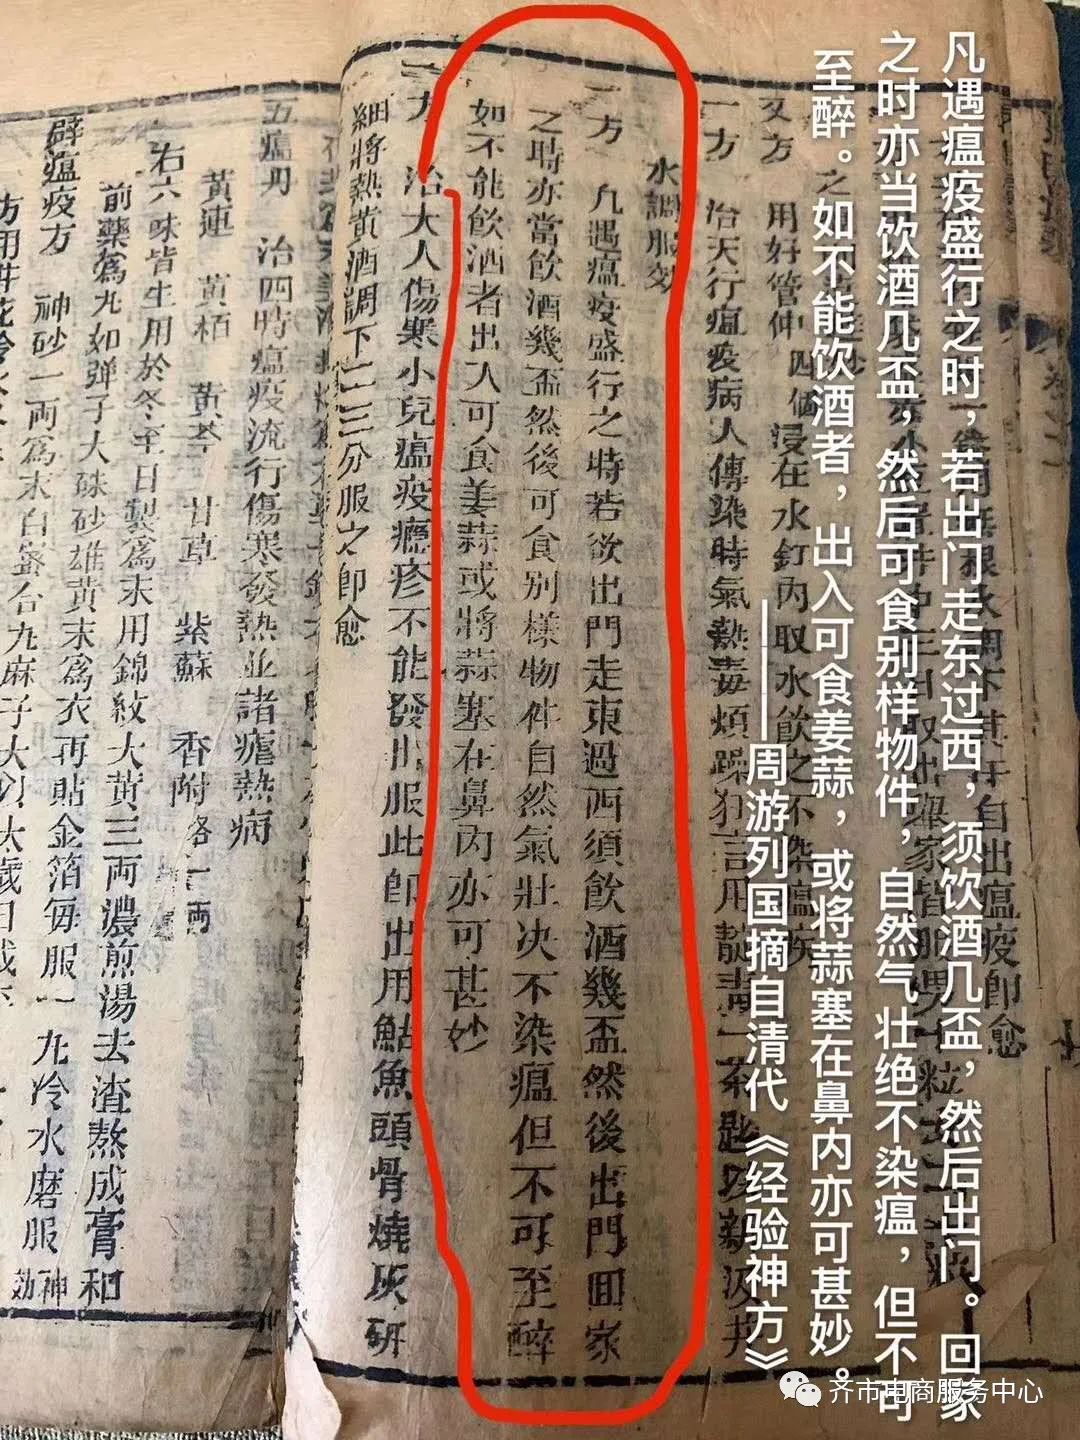 凡遇瘟疫盛行之时，若出门走东过西，须饮酒几盃，然后出门。回家
之时亦当饮酒几盃，然后可食别样物件，自然气壮绝不染瘟，但不可
至醉。之如不能饮酒者，出入可食姜蒜，或将蒜塞在鼻内亦可甚妙。
————周游列国摘自清代《经验神方》
又方 用好管仲四個浸在水缸內取水飲之不染瘟疾
一方 治天行瘟疫病人傳染時氣熱毒煩躁狂言用靛青一茶匙以新汲井
水調服效
一方 凡遇瘟疫盛行之時若欲出門走東過西須飲酒幾盃然後出門回家
之時亦當飲酒幾盃然後可食別樣物件自然氣壯决不染瘟但不可至醉
如不能飲酒者出入可食姜蒜或將蒜塞在鼻內亦可甚妙
一方 治大人傷寒小兒瘟疫癮疹不能發出服此即出用鮎魚頭骨燒灰研
細將熱黃酒調下二三分服之即愈
五瘟丹 治四時瘟疫流行傷寒發熱並諸瘧熱病
黃連 黃栢 黃芩 甘草 紫蘇 香附 各一両
右六味皆生用於冬至日製為末用錦紋大黃三両濃煎湯去渣熬成膏和
前藥為丸如弹子大硃砂雄黃末為衣再貼金箔每服一丸冷水磨服神効
辟瘟疫方 神砂一両為末白蜜合丸麻子大以太歲日
方用井花冷水
齐市电商服务中心